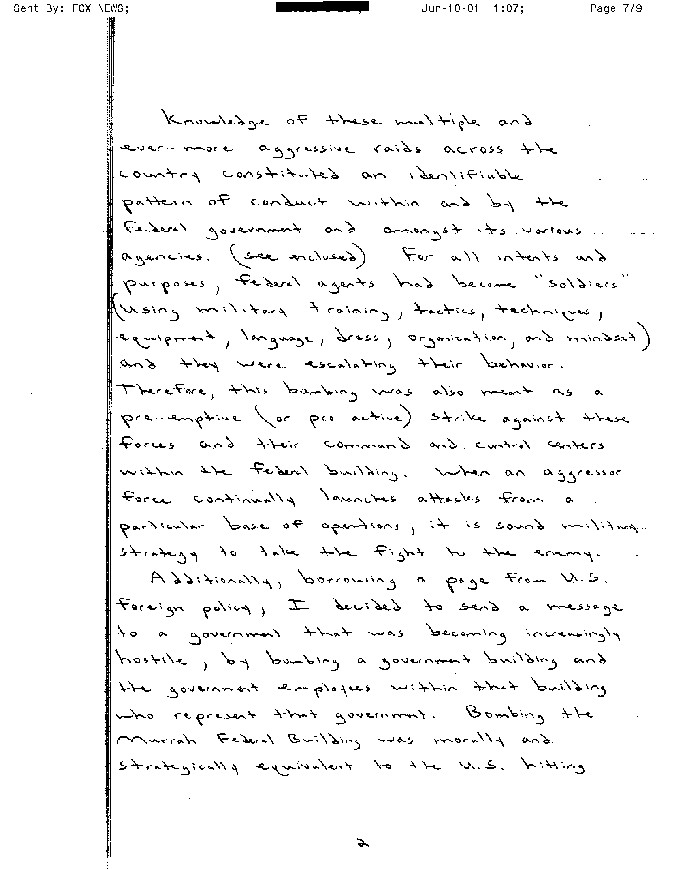 Sent By: FOX NEWS; Jun-10-01 1:07; Page 7/9
Knowledge of these multiple and
ever-more aggressive raids across the
country constituted an identifiable
pattern of conduct within and by the
Federal government and amongst its various
agencies. (see enclosed) For all intents and
purposes, federal agents had become "soldiers"
(using military training, tactics, techniques,
equipment, language, dress, organization, and mindset)
and they were escalating their behavior.
Therefore, this bombing was also meant as a
pre-emptive (or pro active) strike against these
forces and their command and control centers
within the federal building. When an aggressor
force continually launches attacks from a
particular base of operations, it is sound military
strategy to take the fight to the enemy.
Additionally, borrowing a page from U.S.
foreign policy, I decided to send a message
to a government that was becoming increasingly
hostile, by bombing a government building and
the government employees within that building
who represent that government. Bombing the
Murrah Federal Building was morally and
strategically equivalent to the U.S. hitting
2